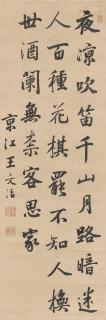 夜凉吹笛千山月路暗迷
人百種花棋罷不知人換
世酒闌無奈客思家
京江王文治